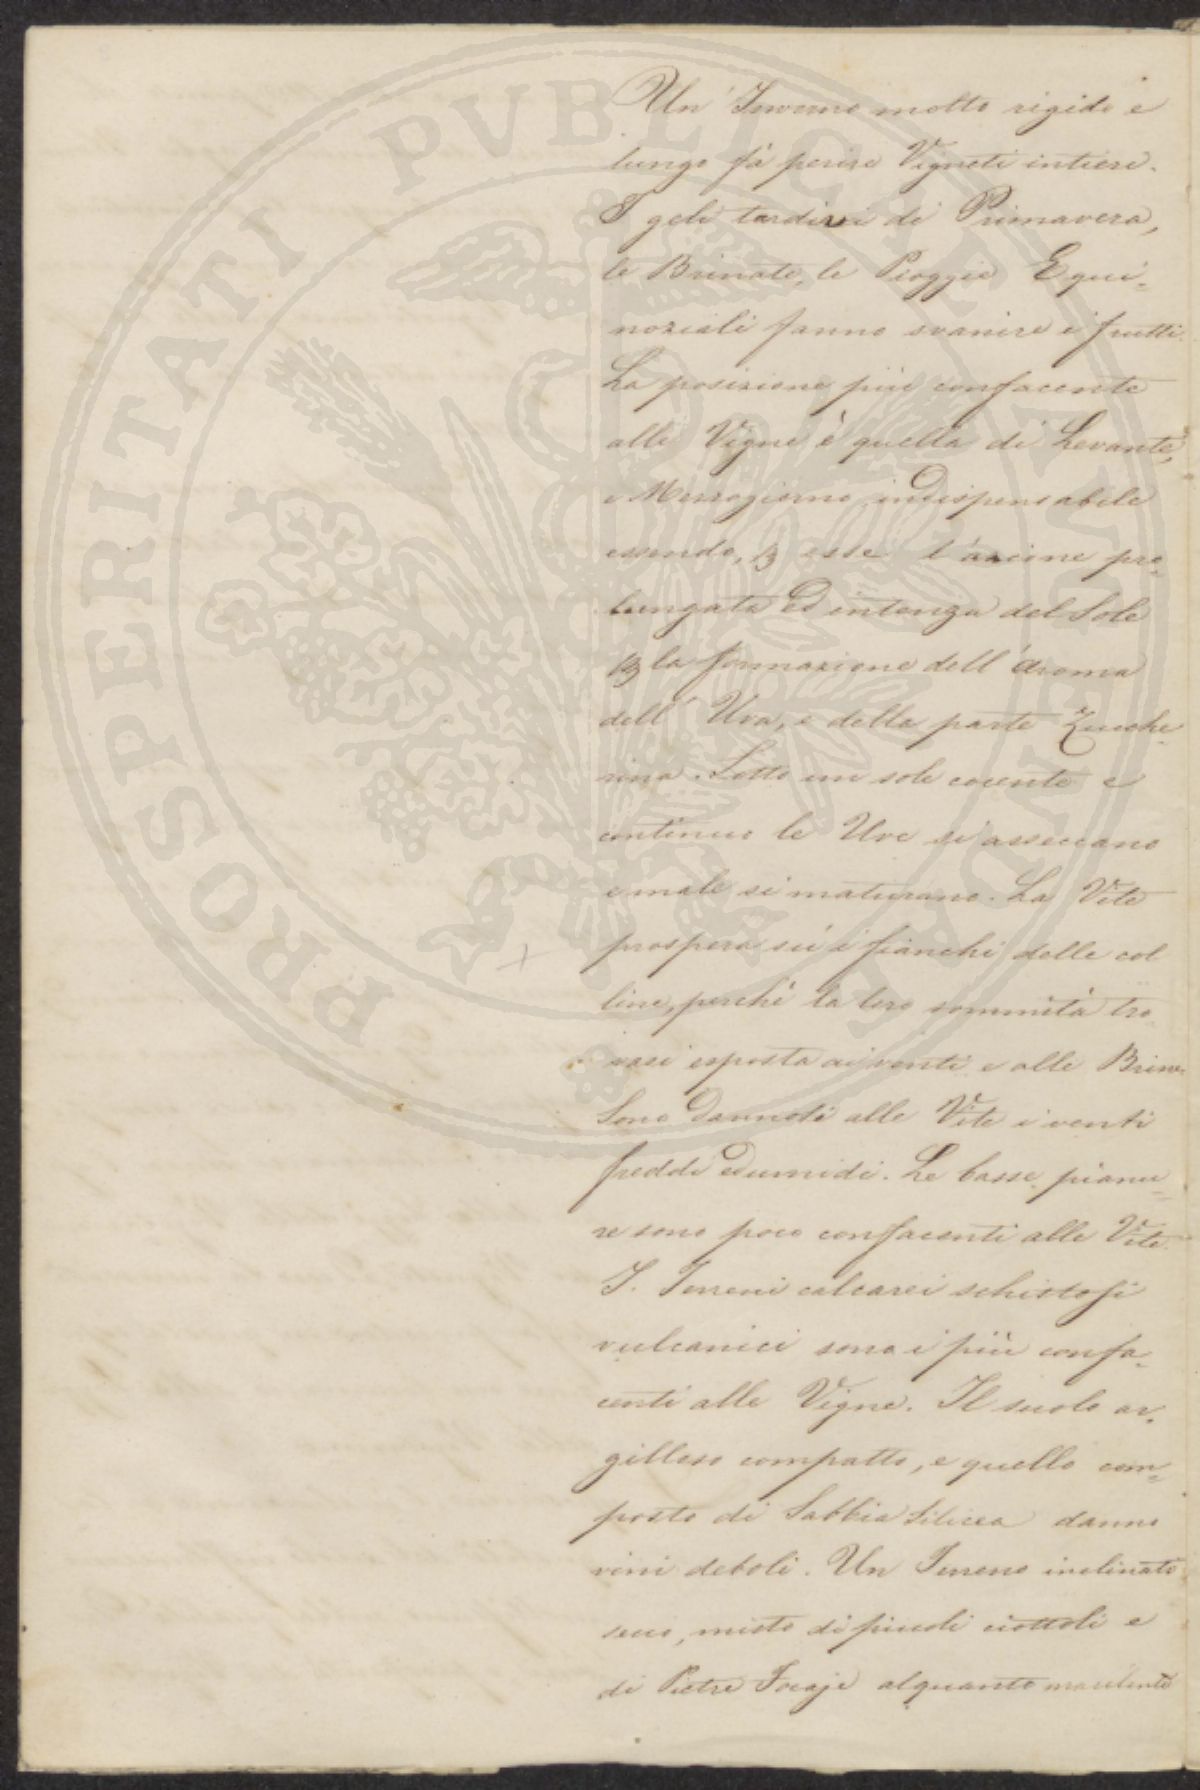 Un' Inverno molto rigido e
lungo fà perire Vigneti intieri.
I geli tardivi di Primavera,
le Brinate, le Pioggie Equi=
noziali fanno svanire i frutti.
La posizione più confacente
alle Vigne è quella di Levante,
e Mezzogiorno indispensabile
essendo, p esse l'azione pro=
lungata ed intenza del Sole
p la formazione dell'aroma
dell'Uva, e della parte Zucche=
rina. Sotto un sole cocente e
continuo le Uve si asseccano
e male si maturano. La Vite
prospera sù i fianchi delle col
line, perchè la loro sommità tro=
vasi esposta ai venti e alle Brine.
Sono dannosi alle Vite i venti
freddi ed umidi. Le basse pianu=
re sono poco confacenti alle Vite.
I. Terreni calcarei schistosi
vulcanici sono i più confa=
centi alle Vigne. Il suolo ar=
gilloso compatto, e quello com=
posto di Sabbia Silicea danno
vini deboli. Un Terreno inclinato
secco, misto di piccoli ciottoli e
di Pietre Focaje alquanto
PROSPERITATI PVBLICAE AVGENDAE